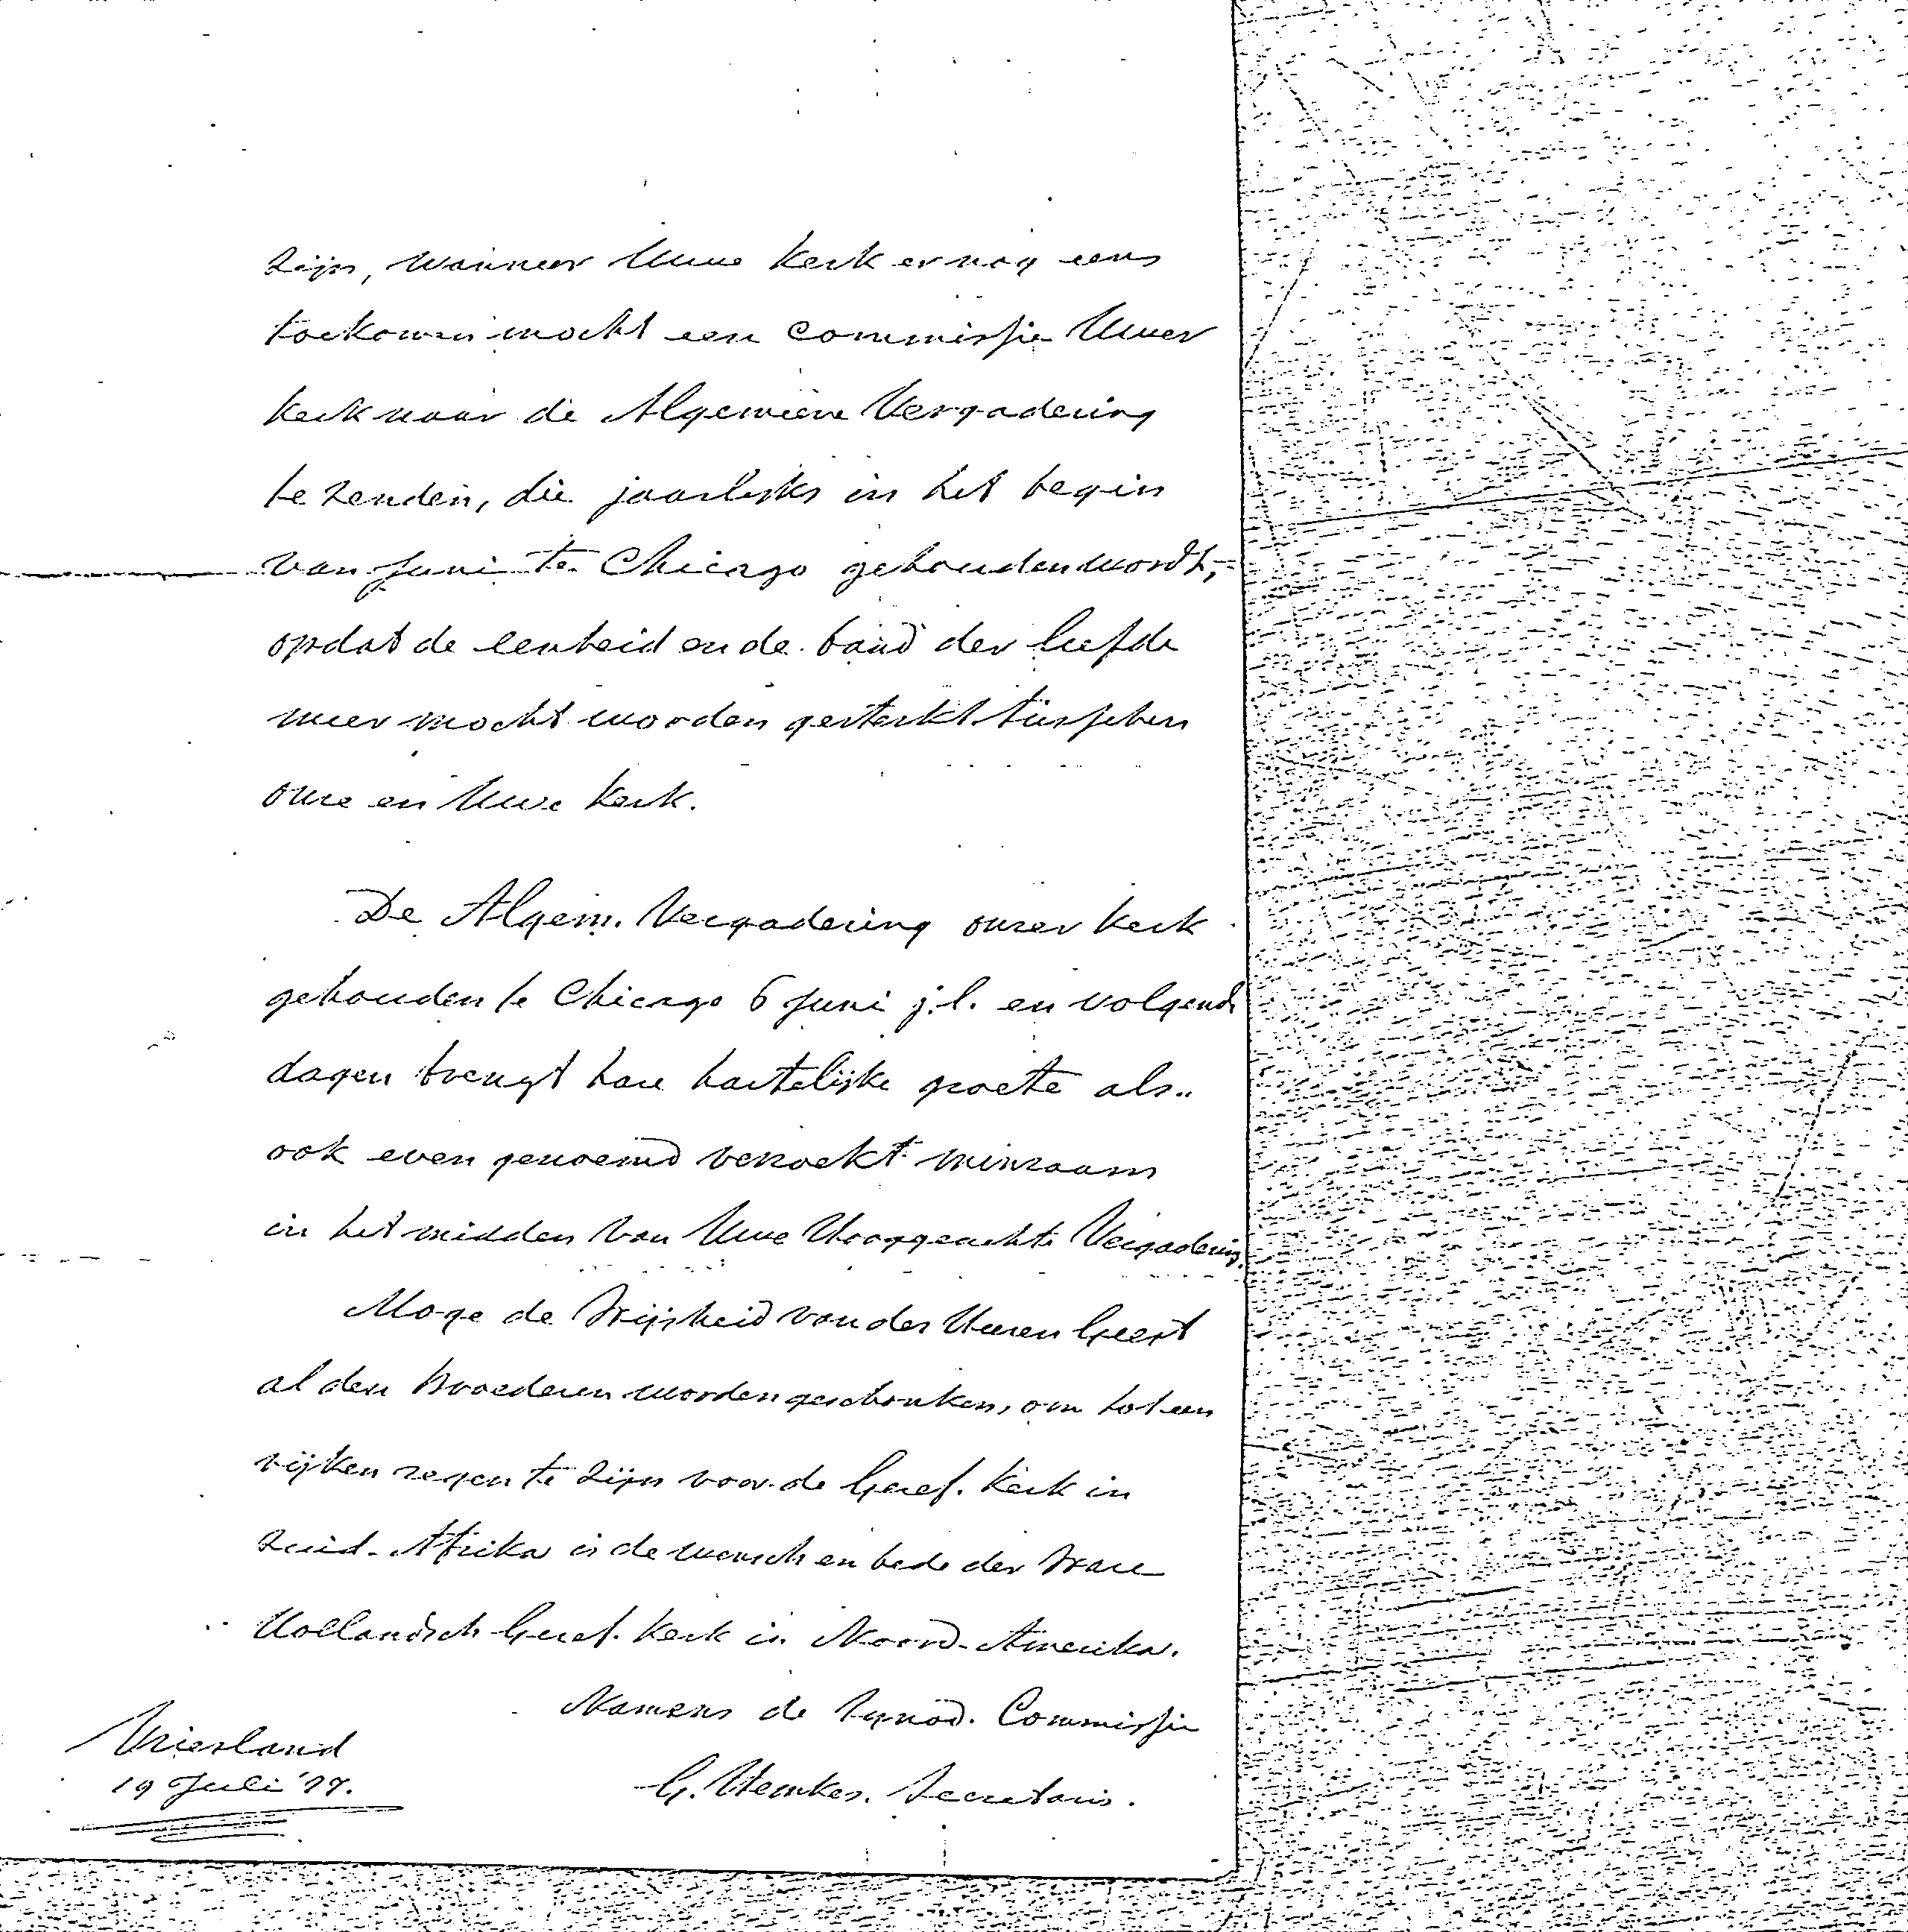 zijn, wanneer Uwe kerk er nog eens
toekomen mocht een commissie Uwer
kerk naar de Algemeene Vergadering
te zenden, die jaarlijks in het begin
van Juni te Chicago gehouden wordt,
opdat de eenheid en de band der liefde
meer mocht worden gesterkt tusschen
onze en Uwe kerk.
De Algem. Vergadering onzer kerk
gehouden te Chicago 6 Juni j.l. en volgende
dagen brengt hare hartelijke groete als
ook even genoemd verzoekt minzaam
in het midden van Uwe Hooggeachte Vergadering.
Moge de Wijsheid van des Heeren Geest
al den Broederen worden geschonken, om tot een
rijken zegen te zijn voor de Geref. kerk in
Zuid-Afrika is de wensch en bede der Ware
Hollandsch Geref. kerk in Noord-Amerika.
Namens de Synod. Commissie
Vriesland
19 Juli '77.
G. Hemkes. Secretaris.